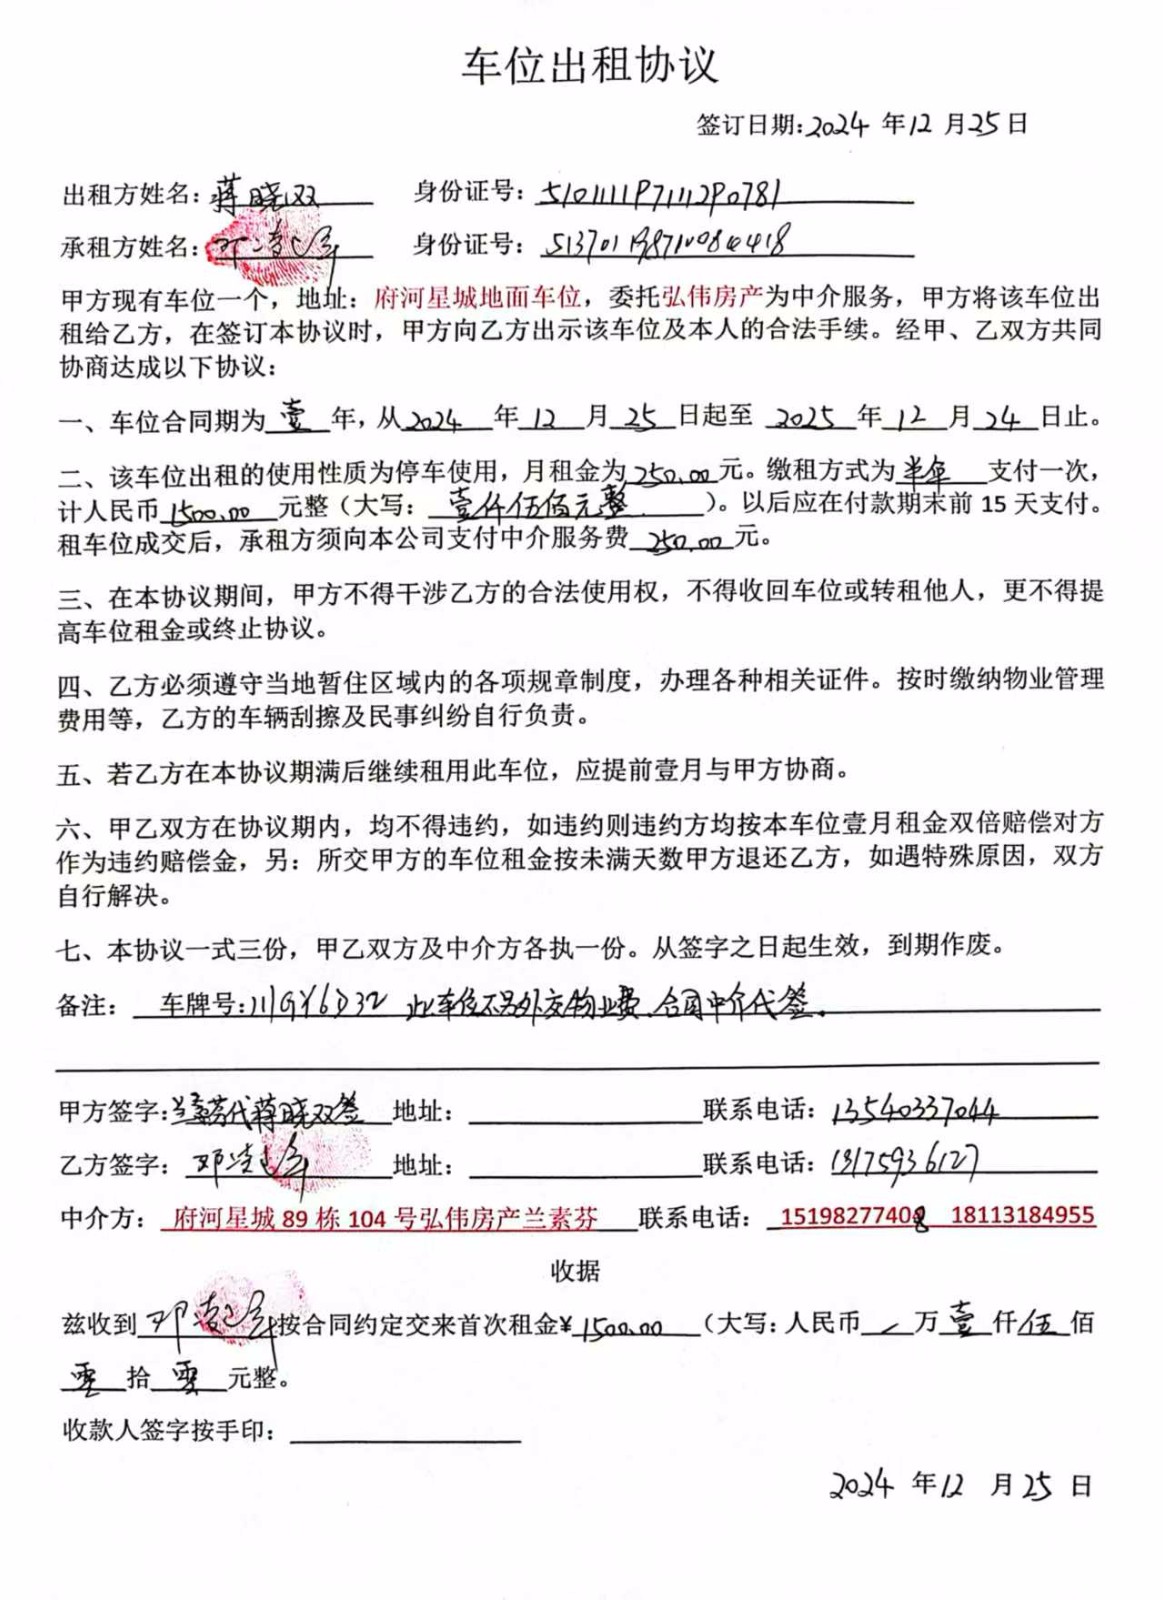 车位出租协议
签订日期:2024 年12 月25日
出租方姓名:蒋晓双 身份证号:510111197111290781
承租方姓名:邓 身份证号:513701198710084418
甲方现有车位一个，地址：府河星城地面车位，委托弘伟房产为中介服务，甲方将该车位出
租给乙方，在签订本协议时，甲方向乙方出示该车位及本人的合法手续。经甲、乙双方共同
协商达成以下协议：
一、车位合同期为 壹 年，从2024 年 12 月 25 日起至 2025 年 12 月 24 日止。
二、该车位出租的使用性质为停车使用，月租金为250.00元。缴租方式为 半年 支付一次，
计人民币1500.00 元整（大写： 壹仟伍佰元整 ）。以后应在付款期末前 15 天支付。
租车位成交后，承租方须向本公司支付中介服务费 250.00 元。
三、在本协议期间，甲方不得干涉乙方的合法使用权，不得收回车位或转租他人，更不得提
高车位租金或终止协议。
四、乙方必须遵守当地暂住区域内的各项规章制度，办理各种相关证件。按时缴纳物业管理
费用等，乙方的车辆刮擦及民事纠纷自行负责。
五、若乙方在本协议期满后继续租用此车位，应提前壹月与甲方协商。
六、甲乙双方在协议期内，均不得违约，如违约则违约方均按本车位壹月租金双倍赔偿对方
作为违约赔偿金，另：所交甲方的车位租金按未满天数甲方退还乙方，如遇特殊原因，双方
自行解决。
七、本协议一式三份，甲乙双方及中介方各执一份。从签字之日起生效，到期作废。
备注： 车牌号:川GY6D32 此车位不另外交物业费、合同中介代签。
甲方签字:兰素芬代蒋晓双签 地址： 联系电话：13540337044
乙方签字：邓 地址： 联系电话：13175936127
中介方： 府河星城 89 栋 104 号弘伟房产兰素芬 联系电话： 15198277408 18113184955
收据
兹收到 邓 按合同约定交来首次租金¥1500.00 （大写：人民币 万 壹 仟 伍 佰
零 拾 零 元整。
收款人签字按手印：
2024 年12 月 25 日